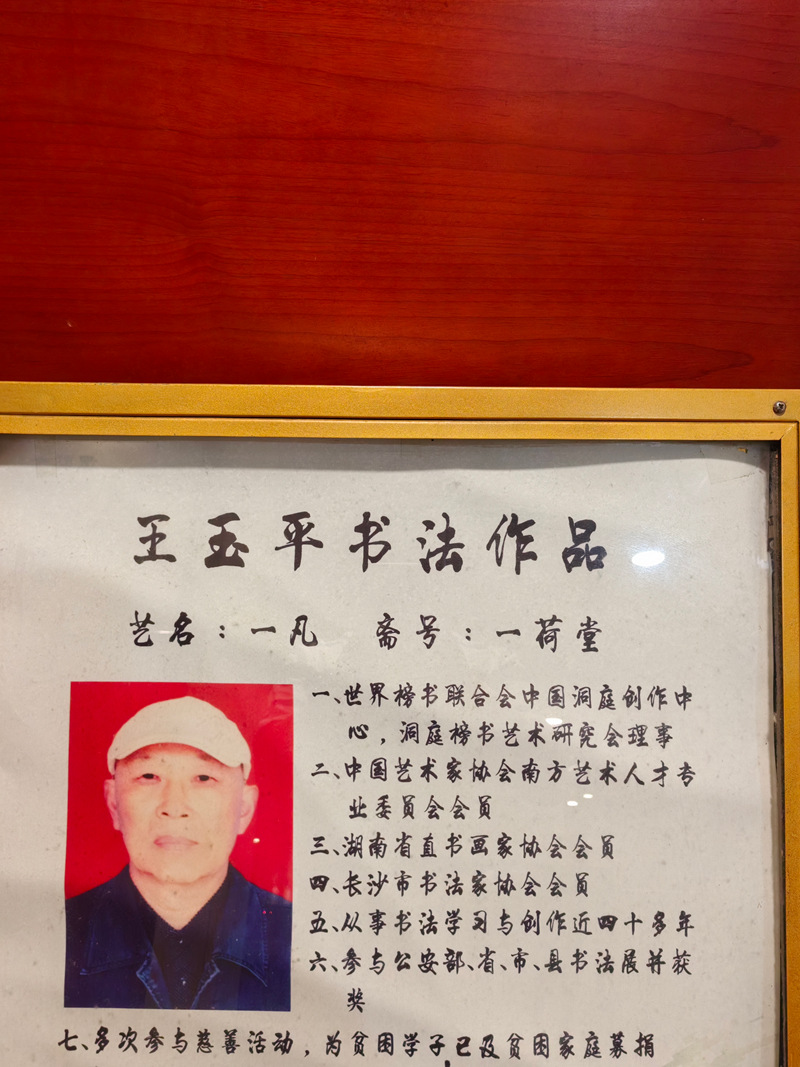 王玉平书法作品
艺名：一凡 斋号：一荷堂
一、世界榜书联合会中国洞庭创作中
心，洞庭榜书艺术研究会理事
二、中国艺术家协会南方艺术人才专
业委员会会员
三、湖南省直书画家协会会员
四、长沙市书法家协会会员
五、从事书法学习与创作近四十多年
六、参与公安部、省、市、县书法展并获
奖
七、多次参与慈善活动，为贫困学子已及贫困家庭募捐